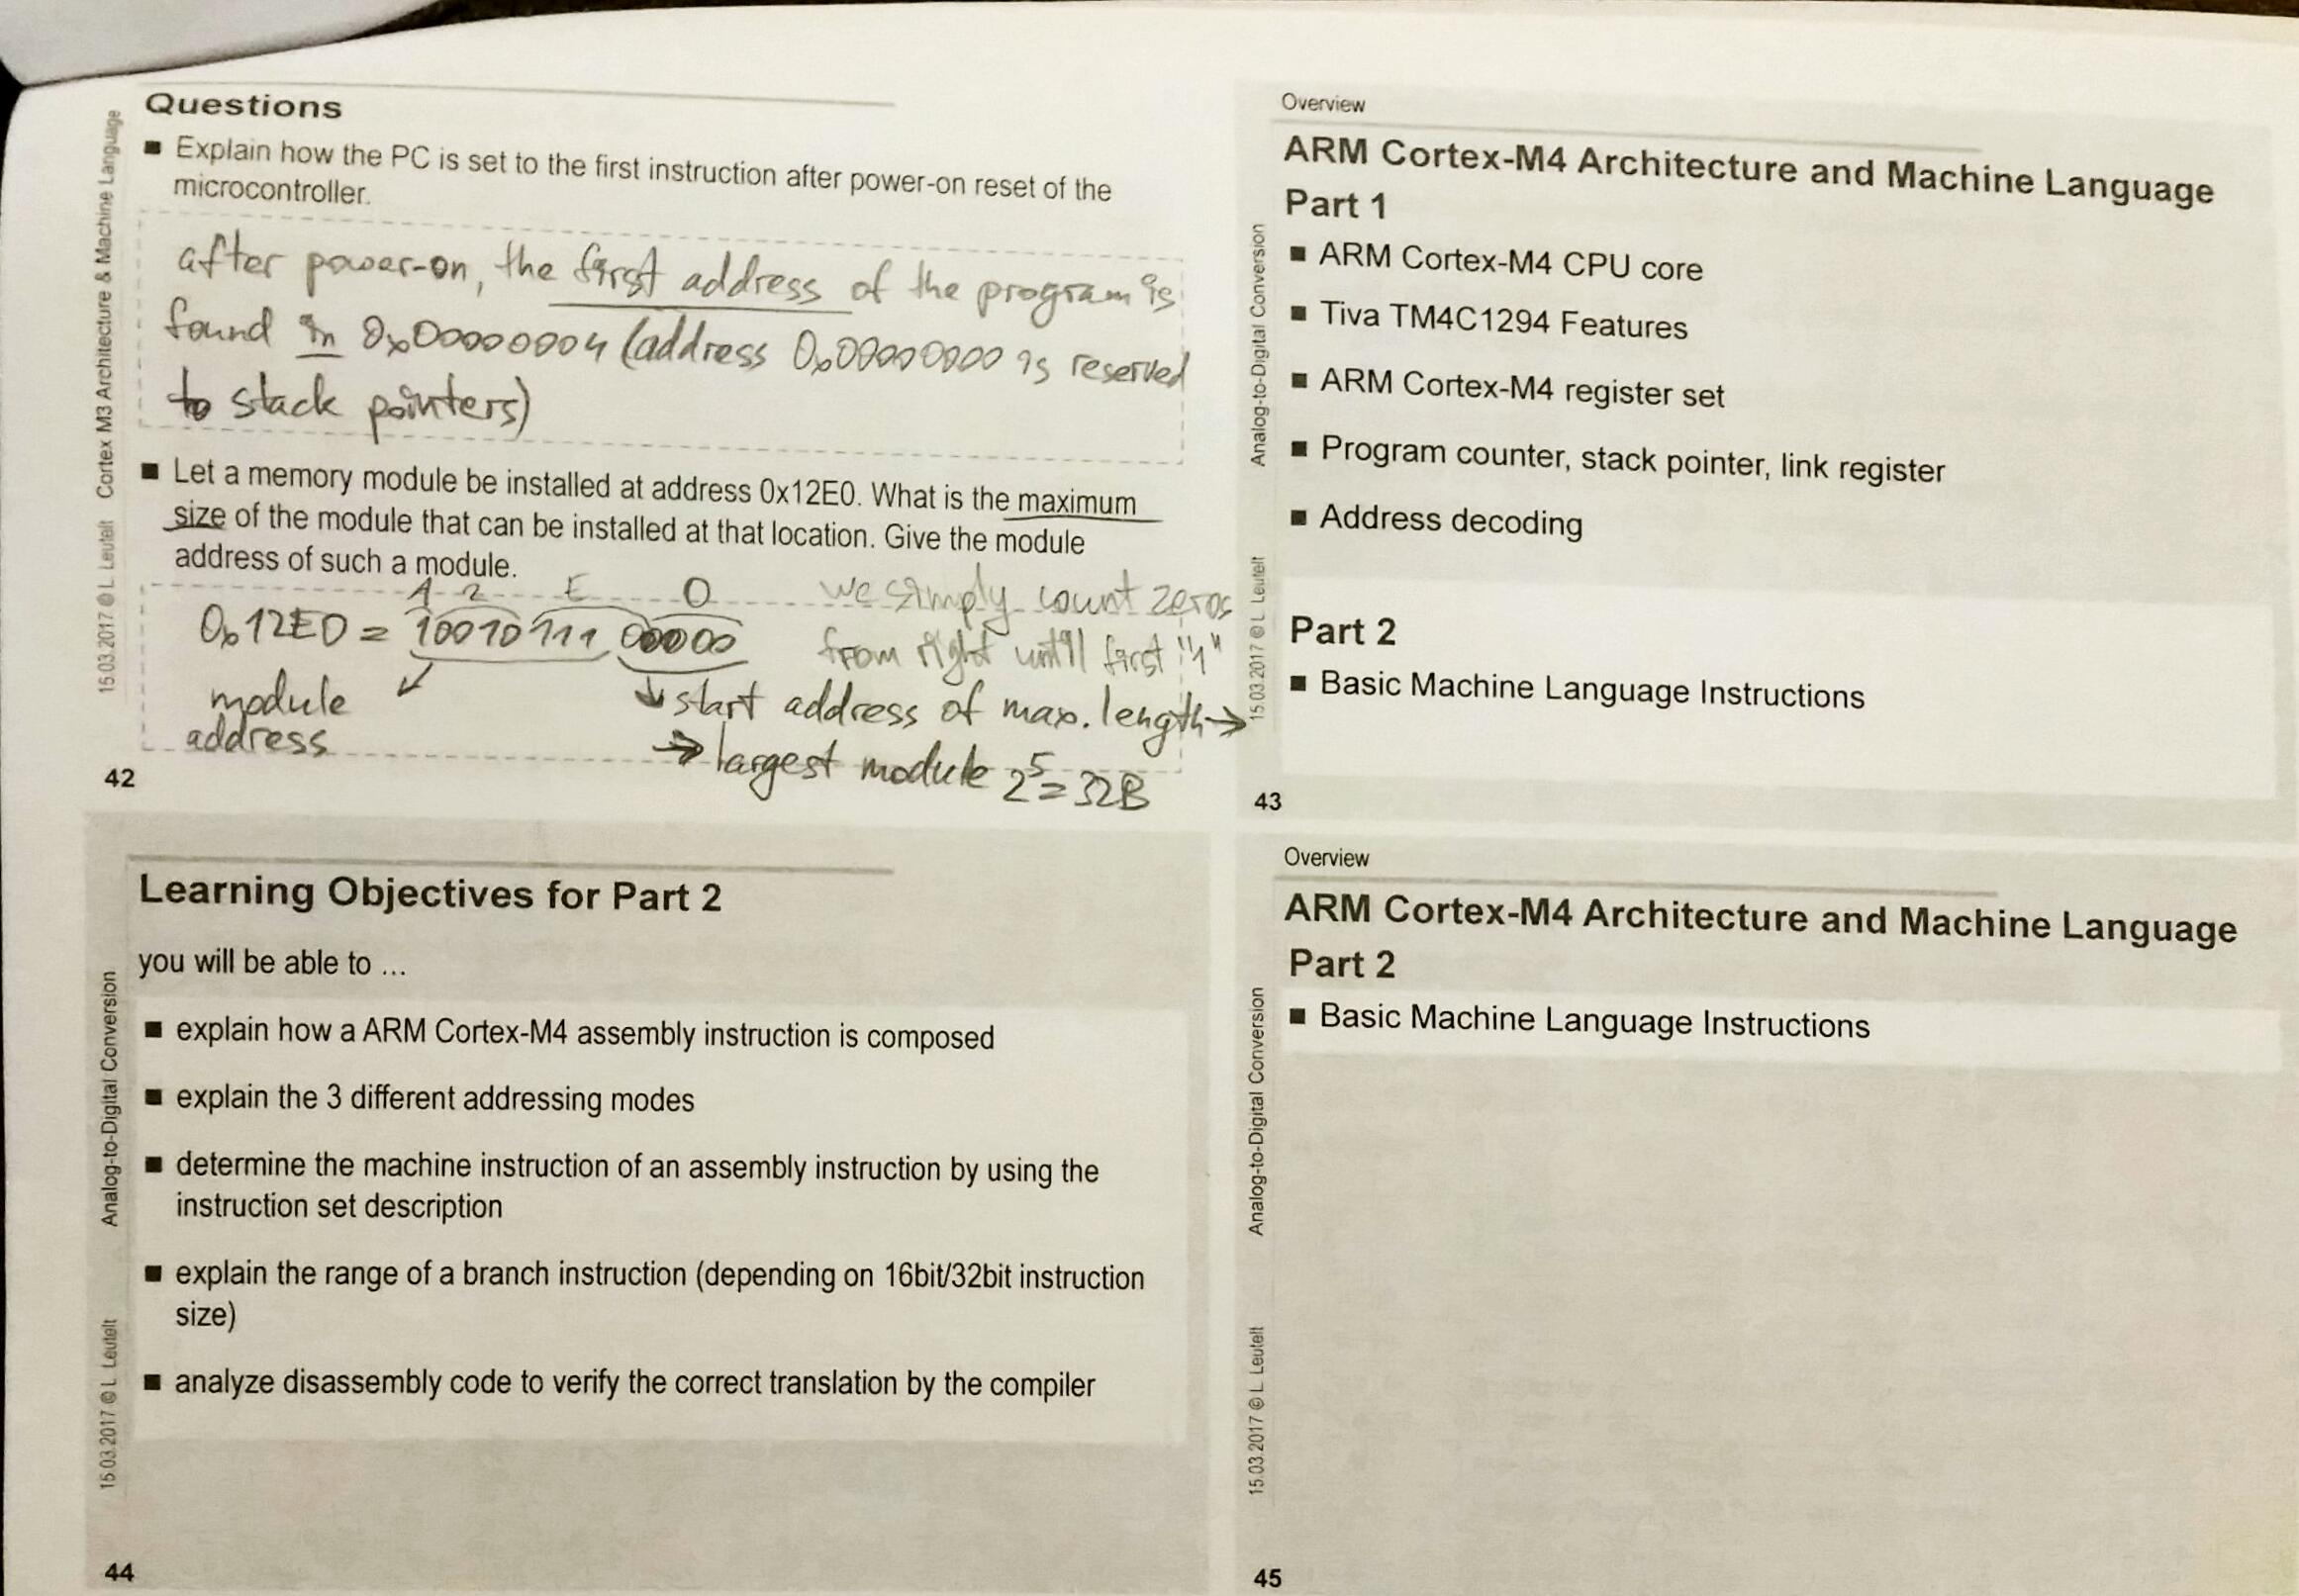 Questions
■ Explain how the PC is set to the first instruction after power-on reset of the
microcontroller.
after power-on, the first address of the program is
found in 0x00000004 (address 0x00000000 is reserved
to stack pointers)
■ Let a memory module be installed at address 0x12E0. What is the maximum
size of the module that can be installed at that location. Give the module
address of such a module.
1 2 E 0
0x12E0 = 10010111 00000
we simply count zeros
from right until first "1"
module
address
start address of max. length →
→ largest module 2^5 = 32B
15.03.2017 © L Leutelt Cortex M3 Architecture & Machine Language
42
Overview
ARM Cortex-M4 Architecture and Machine Language
Part 1
■ ARM Cortex-M4 CPU core
■ Tiva TM4C1294 Features
■ ARM Cortex-M4 register set
■ Program counter, stack pointer, link register
■ Address decoding
Part 2
■ Basic Machine Language Instructions
15.03.2017 © L Leutelt Analog-to-Digital Conversion
43
Learning Objectives for Part 2
you will be able to ...
■ explain how a ARM Cortex-M4 assembly instruction is composed
■ explain the 3 different addressing modes
■ determine the machine instruction of an assembly instruction by using the
instruction set description
■ explain the range of a branch instruction (depending on 16bit/32bit instruction
size)
■ analyze disassembly code to verify the correct translation by the compiler
15.03.2017 © L Leutelt Analog-to-Digital Conversion
44
Overview
ARM Cortex-M4 Architecture and Machine Language
Part 2
■ Basic Machine Language Instructions
15.03.2017 © L Leutelt Analog-to-Digital Conversion
45